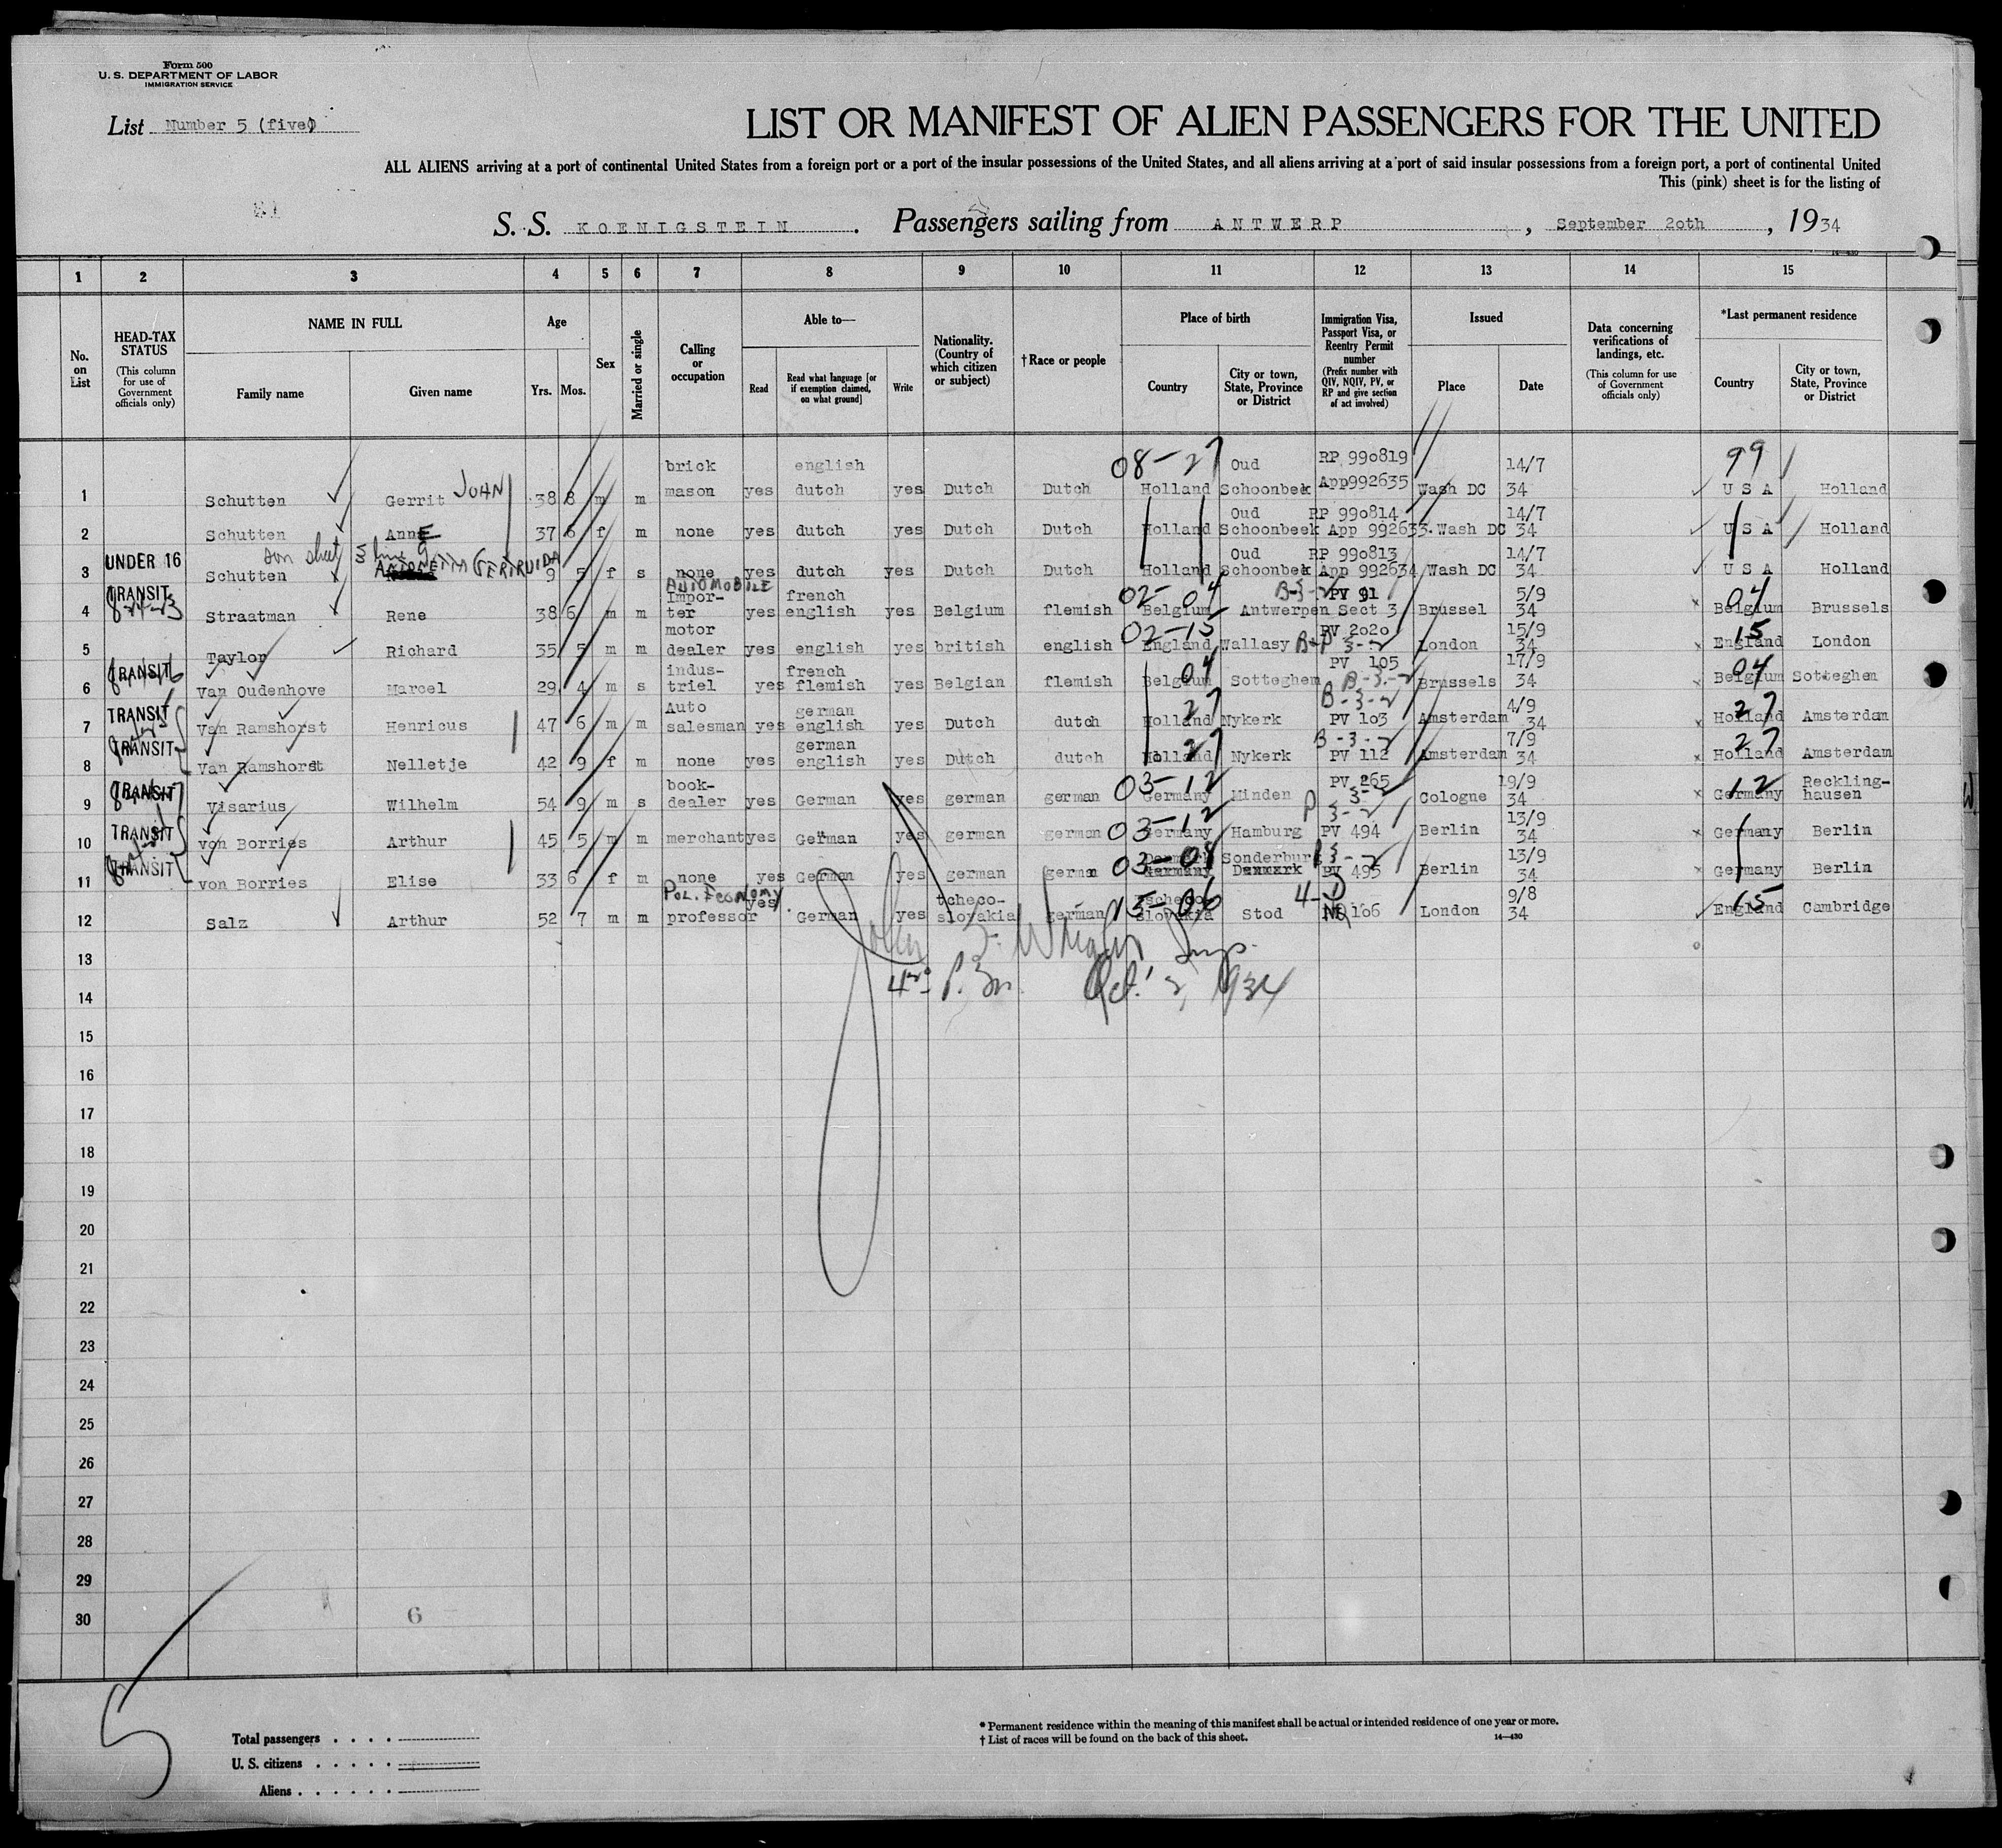 Form 500
U. S. DEPARTMENT OF LABOR
IMMIGRATION SERVICE
List Number 5 (five)
LIST OR MANIFEST OF ALIEN PASSENGERS FOR THE UNITED
ALL ALIENS arriving at a port of continental United States from a foreign port or a port of the insular possessions of the United States, and all aliens arriving at a port of said insular possessions from a foreign port, a port of continental United
This (pink) sheet is for the listing of
S. S. KOENIGSTEIN . Passengers sailing from ANTWERP , September 20th , 1934
14—430
1 2 3 4 5 6 7 8 9 10 11 12 13 14 15
No. on List
HEAD-TAX STATUS (This column for use of Government officials only)
NAME IN FULL Family name Given name
Age Yrs. Mos.
Sex
Married or single
Calling or occupation
Able to— Read Read what language [or if exemption claimed, on what ground] Write
Nationality. (Country of which citizen or subject)
†Race or people
Place of birth Country City or town, State, Province or District
Immigration Visa, Passport Visa, or Reentry Permit number (Prefix number with QIV, NQIV, PV, or RP and give section of act involved)
Issued Place Date
Data concerning verifications of landings, etc. (This column for use of Government officials only)
*Last permanent residence Country City or town, State, Province or District
08-27 99
brick english Oud RP 990819 14/7
1 Schutten Gerrit JOHN 38 8 m m mason yes dutch yes Dutch Dutch Holland Schoonbeek App992635 Wash DC 34 U S A Holland
Oud RP 990814 14/7
2 Schutten AnnE 37 6 f m none yes dutch yes Dutch Dutch Holland Schoonbeek App 992633 Wash DC 34 U S A Holland
UNDER 16 Oud RP 990813 14/7
3 Schutten ANTONETTA GERTRUIDA 9 5 f s none yes dutch yes Dutch Dutch Holland Schoonbeek App 992634 Wash DC 34 U S A Holland
TRANSIT AUTOMOBILE Impor- french 02-04 B-3-2 PV 91 5/9 04
4 Straatman Rene 38 6 m m ter yes english yes Belgium flemish Belgium Antwerpen Sect 3 Brussel 34 Belgium Brussels
motor 02-15 PV 2020 15/9 15
5 Taylor Richard 35 5 m m dealer yes english yes british english England Wallasy 3-2 London 34 England London
TRANSIT indus- french 04 PV 105 17/9 04
6 Van Oudenhove Marcel 29 4 m s triel yes flemish yes Belgian flemish Belgium Sotteghem B-3-2 Brussels 34 Belgium Sotteghem
TRANSIT Auto german 27 B-3-2 4/9 27
7 Van Ramshorst Henricus 47 6 m m salesman yes english yes Dutch dutch Holland Nykerk PV 103 Amsterdam 34 Holland Amsterdam
TRANSIT german 27 B-3-2 7/9 27
8 Van Ramshorst Nelletje 42 9 f m none yes english yes Dutch dutch Holland Nykerk PV 112 Amsterdam 34 Holland Amsterdam
TRANSIT book- 03-12 PV 265 19/9 12 Reckling-
9 Visarius Wilhelm 54 9 m s dealer yes German yes german german Germany Minden P 3-2 Cologne 34 Germany hausen
TRANSIT 03-12 3-2 13/9
10 von Borries Arthur 45 5 m m merchant yes German yes german german Germany Hamburg PV 494 Berlin 34 Germany Berlin
TRANSIT 03-08 Denmark Sonderburg 13/9
11 von Borries Elise 33 6 f m none yes German yes german german Germany Denmark PV 495 Berlin 34 Germany Berlin
POL. ECONOMY yes tcheco- 15-06 Tscheco- 4-D 9/8 15
12 Salz Arthur 52 7 m m professor German yes slovakia german slovakia Stod 106 London 34 England Cambridge
13
14 4 P. m. Oct. 2, 1934
15
16
17
18
19
20
21
22
23
24
25
26
27
28
29
30
6
5
Total passengers
U. S. citizens
Aliens
* Permanent residence within the meaning of this manifest shall be actual or intended residence of one year or more.
† List of races will be found on the back of this sheet.
14—430